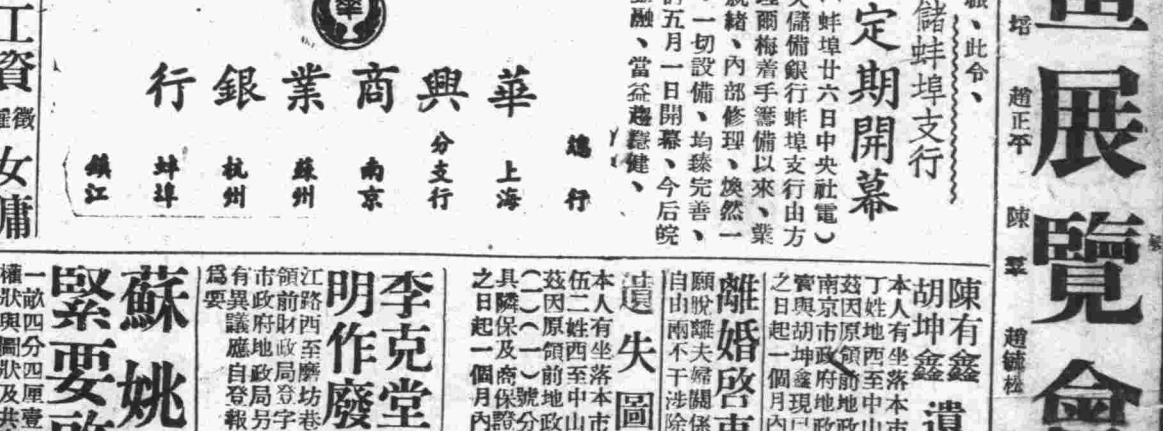 展覽會
培
趙正平
陳羣
趙毓松
此令、
儲蚌埠支行
定期開幕
蚌埠廿六日中央社電）
儲備銀行蚌埠支行由方
理爾梅着手籌備以來、業
就緒、內部修理、煥然一
一切設備、均臻完善、
五月一日開幕、今后皖
融、當益趨穩健、
華興商業銀行
總行
上海
分支行
南京
蘇州
杭州
蚌埠
鎮江
工資
徵
女傭
陳有鑫
胡坤鑫
遺
本人有坐落本市
丁姓地西至中山
茲因原領前地政
南京市政府地政
管與胡坤鑫現已
之日起一個月內
離婚啓事
願脫離夫婦關係
自由兩不干涉除
遺失圖
本人有坐落本市
伍二姓西至中山
茲因原領前地政
（一）（一）號分
具隣保及商保證
之日起一個月內
李克堂
明作廢
江路西至磨坊巷
領前財政局登字
市政府地政局另
有異議應自登報
爲要
蘇姚
緊要啟
一畝四分四厘壹
權狀與圖狀及共